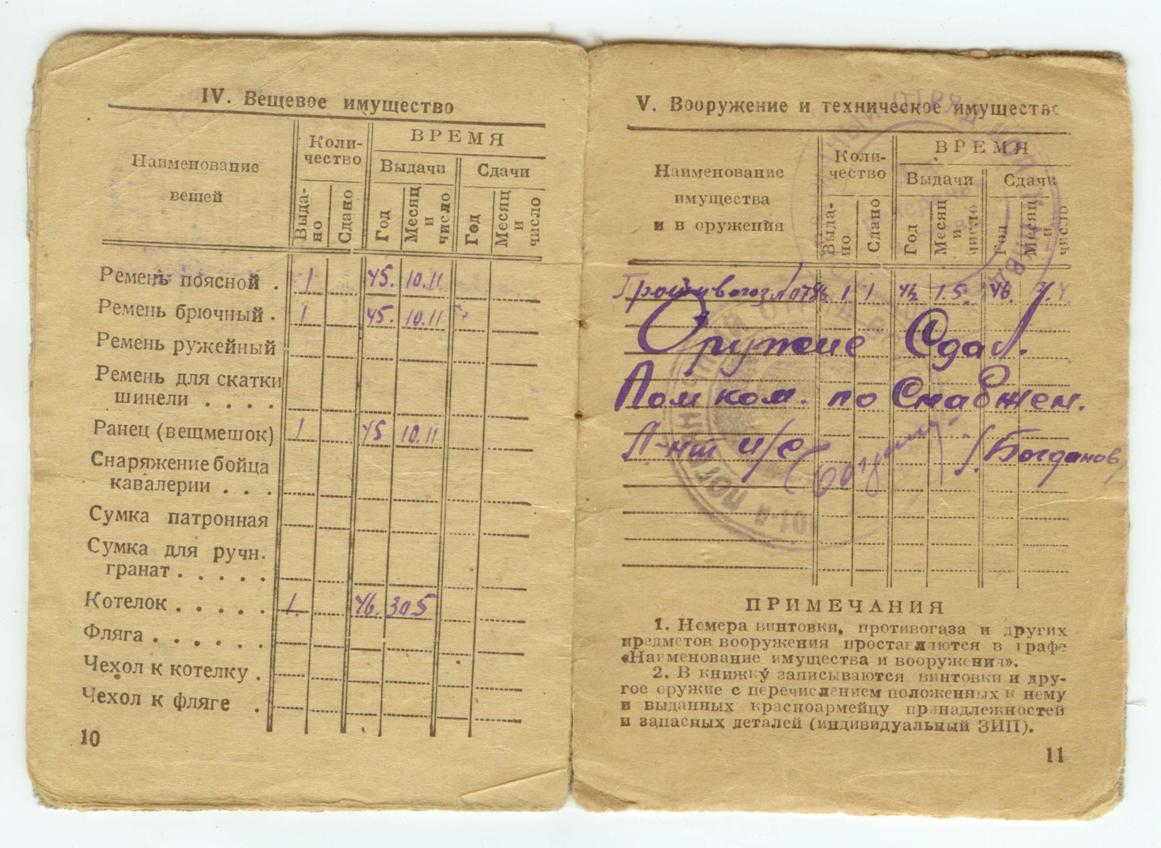 IV. Вещевое имущество
Наименование вещей
Количество
ВРЕМЯ
Выдачи
Сдачи
Выдано
Сдано
Год
Месяц и число
Год
Месяц и число
Ремень поясной . 1 45. 10.11
Ремень брючный . 1 45. 10.11
Ремень ружейный
Ремень для скатки
шинели . . . .
Ранец (вещмешок) 1 45 10.11
Снаряжение бойца
кавалерии . . .
Сумка патронная
Сумка для ручн.
гранат . . . . .
Котелок . . . . . 1. 46. 30 5
Фляга . . . . . .
Чехол к котелку .
Чехол к фляге .
10
V. Вооружение и техническое имущество
Наименование
имущества
и в оружения
Количество
ВРЕМЯ
Выдачи
Сдачи
Выдано
Сдано
Год
Месяц и число
Год
Месяц и число
Противогаз 1 1 1.5. 46.
Оружие Сдал.
Пом ком. по Снабжен.
Л-нт и/с /Богданов/
ПРИМЕЧАНИЯ
1. Номера винтовки, противогаза и других
предметов вооружения проставляются в графе
«Наименование имущества и вооружения».
2. В книжку записываются винтовки и дру-
гое оружие с перечислением положенных к нему
и выданных красноармейцу принадлежностей
и запасных деталей (индивидуальный ЗИП).
11